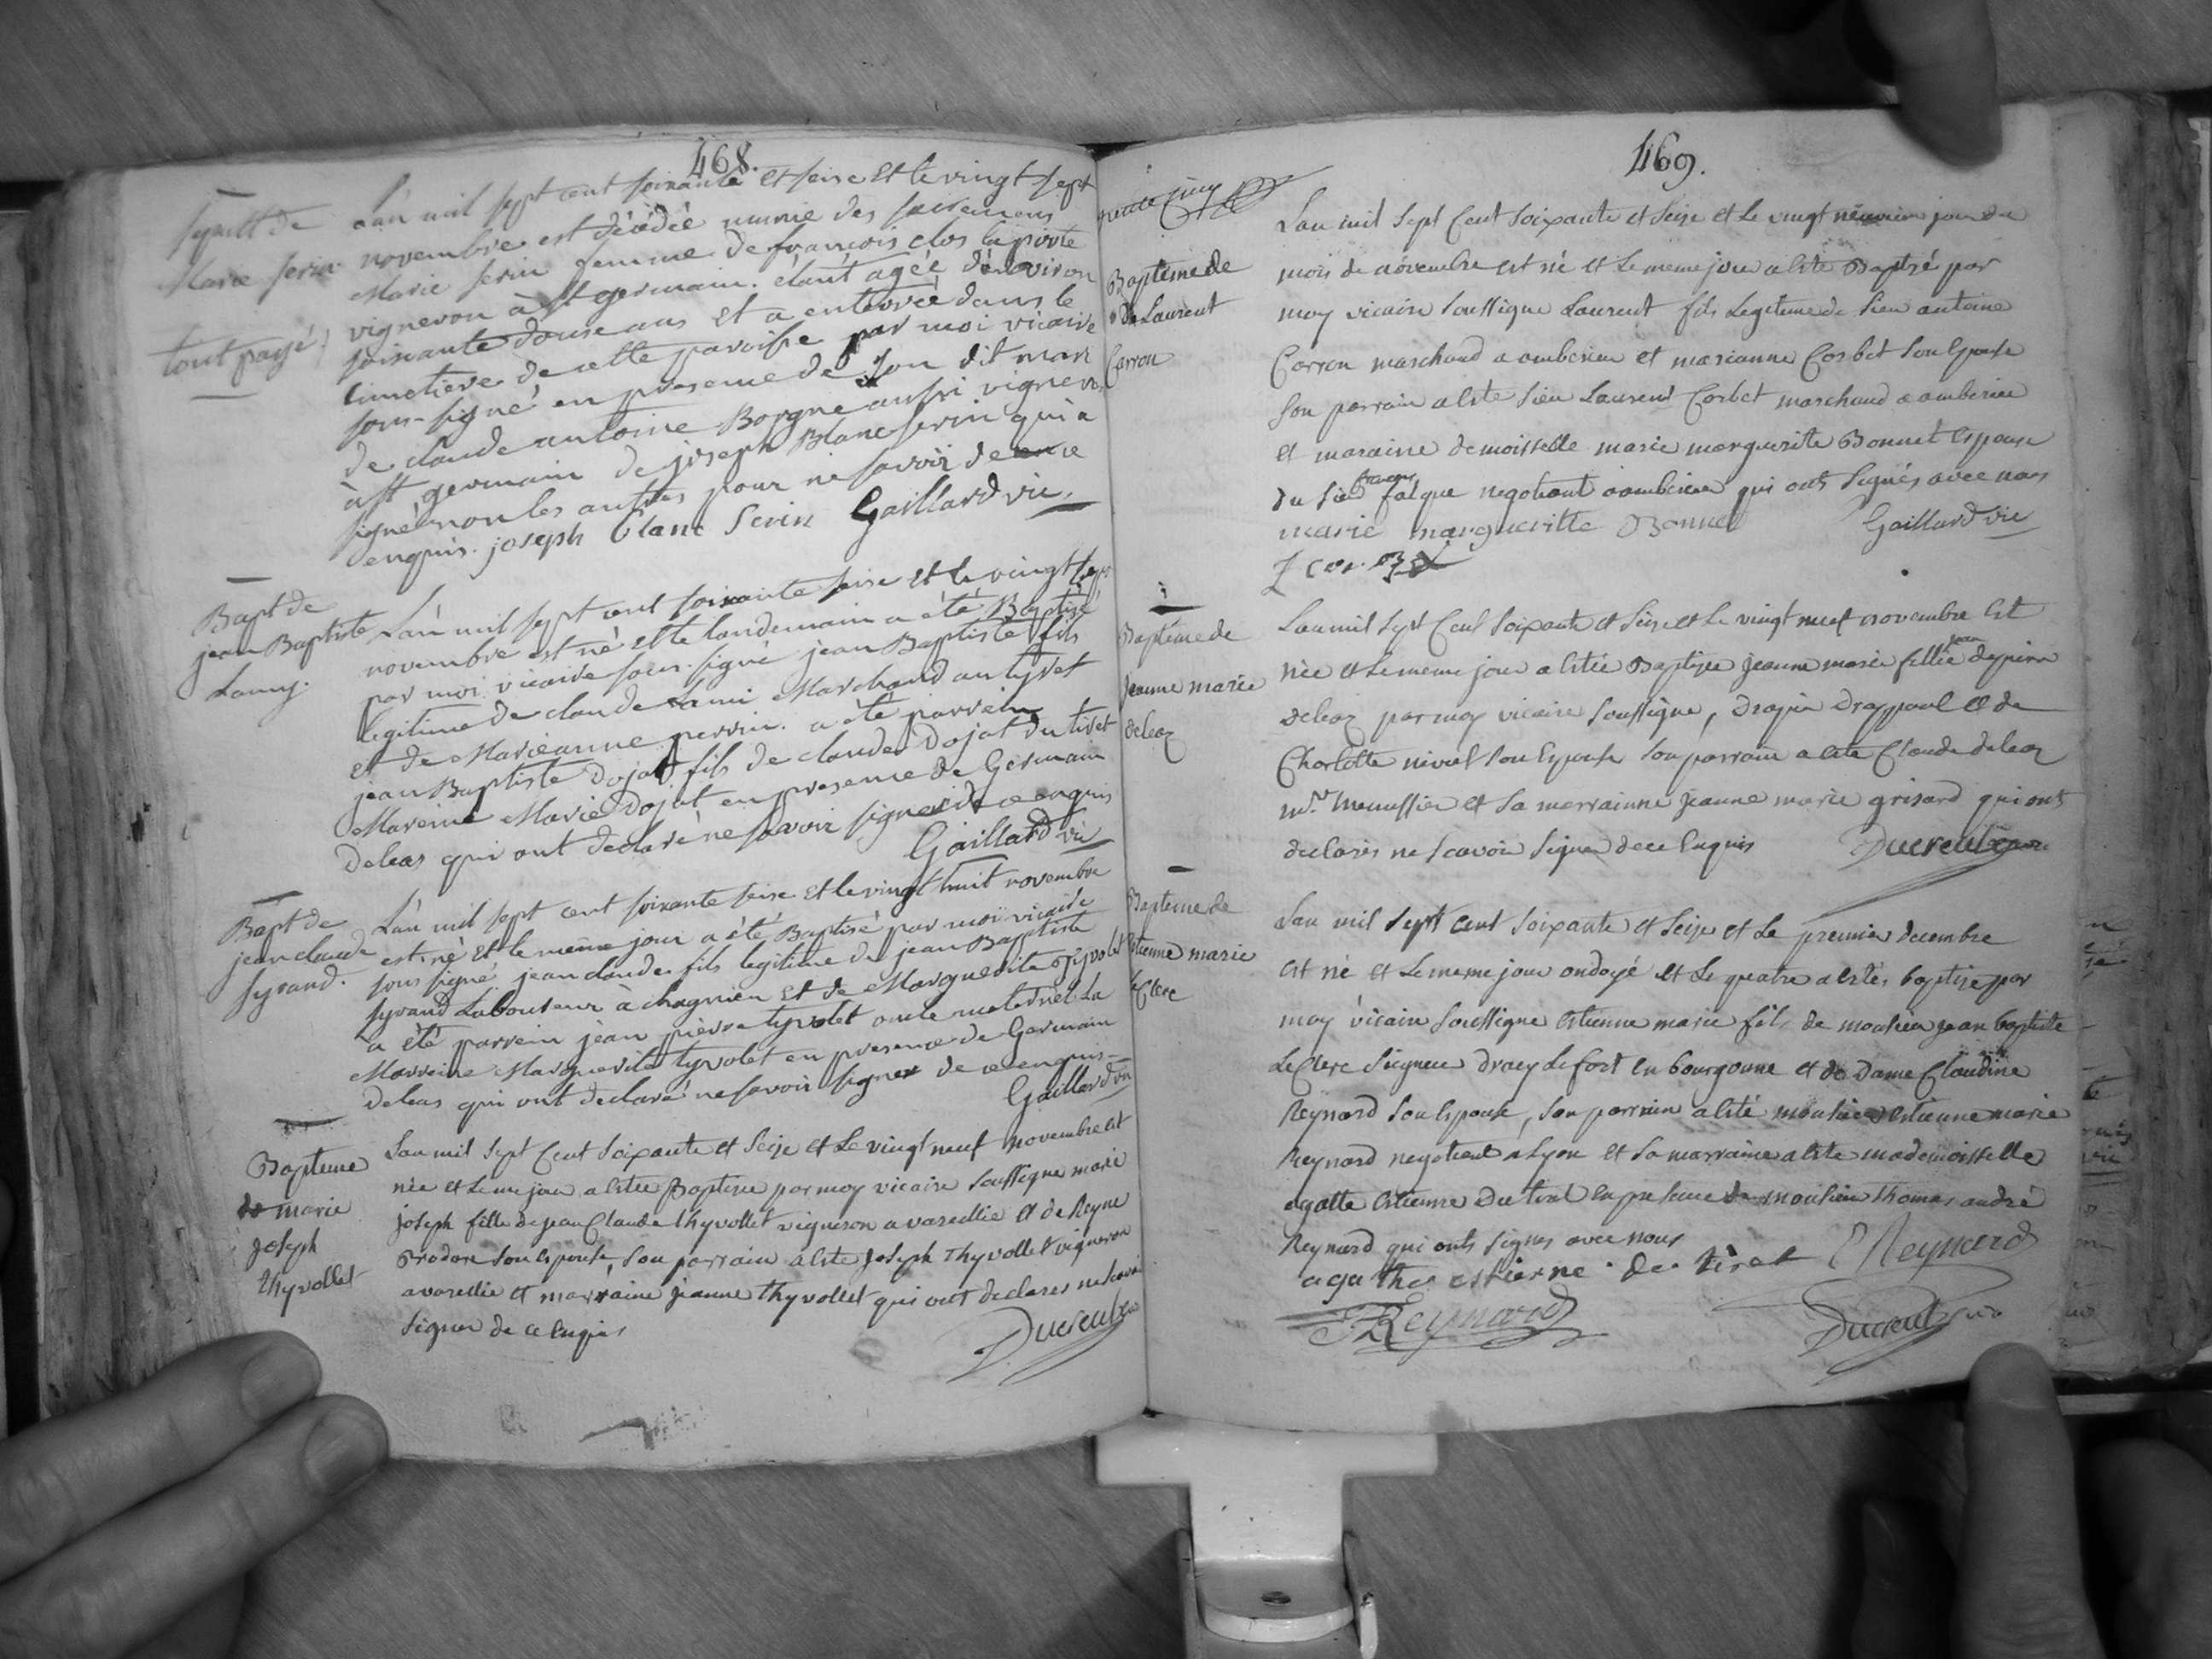 468.
Sepult de
Marie serin
tout payé
L'an mil sept cent soixante et seise et le vingt sept
novembre est décédée munie des sacremens
Marie serin femme de françois clos la porte
vigneron à st germain. étant agée d'environ
soixante douse ans et a enterrée dans le
cimetiere de cette paroisse par moi vicaire
sous-signé en presence de son dit mari
de claude antoine Borgne aussi vigneron
à st germain de joseph Blanc serin qui a
signé non les autres pour ne savoir de ce
enquis. joseph blanc Serin Gaillard vic.
Bapt de
jean Baptiste
Lamy.
L'an mil sept cent soixante seise et le vingt sept
novembre est né et le landemain a été Baptisé
par moi vicaire sous-signé jean Baptiste fils
legitime de claude Lami Marchand au tyret
et de Marieanne perrin. a été parrein
jean Baptiste Dojat fils de claude Dojat du tiret
Mareine Marie Dojat en presence de Germain
Deleas qui ont declaré ne savoir signer de ce enquis
Gaillard vic
Bapt de
jean claude
syrand.
L'an mil sept cent soixante seise et le vingt huit novembre
est né et le même jour a été Baptisé par moi vicaire
sous signé jean claude fils legitime de jean Baptiste
syrand Laboureur à chagnieu et de Marguerite tyvolet
a été parrein jean pierre tyvolet oncle maternel La
Marreine Marguerite tyvolet en presence de Germain
deleas qui ont declaré ne savoir signer de ce enquis
Gaillard vic
Bapteme
de marie
joseph
thyvollet
Lan mil sept Cent soixante et seize et Le vingt neuf novembre est
née et le me jour a estée Baptisée par moy vicaire soussigne marie
joseph fille de jean Claude thyvollet vigneron a vareillie et de Reyne
Brodore son espouse, son parrain a este joseph thyvollet vigneron
a vareillie et marraine jeanne thyvollet qui ont declares ne scavoir
signer de ce enquis
Ducreult vic
469.
Bapteme de
de Laurent
Carron
Lan mil sept Cent soixante et seize et Le vingt neuvieme jour du
mois de novembre est né et le meme jour a esté Baptisé par
moy vicaire soussigne Laurent fils Legitime de sieu antoine
Carron marchand a amberieu et marianne Corbet son espouse
son parrain a este sieu Laurent Corbet marchand a amberieu
et maraine demoisselle marie marguerite Bonnet espouse
du sieu françois falque negotiant a amberieu qui onts signés avec nous
marie margueritte Bonnet Gaillard vic
Bapteme de
jeanne marie
deleaz
Lan mil sept Cent soixante et seize et Le vingt neuf novembre est
née et le meme jour a estée Baptisée jeanne marie fillie de jean pierre
deleaz par moy vicaire soussigne, drapier drappant et de
Charlotte niviel son espouse son parrain a este Claude deleaz
md. menussier et sa marrainne jeanne marie grisard qui onts
declarés ne scavoir signer de ce enquis Ducreult vic
Bapteme de
estienne marie
leClerc
Lan mil sept Cent soixante et seize et Le premier decembre
est né et le meme jour ondoyé et Le quatre a estés baptisé par
moy vicaire soussigne estienne marie fils de monsieu jean baptiste
LeClerc seigneur dracy Le fort en bourgonne et de Dame Claudine
Reynard son espouse, son parrain a esté monsieu estienne marie
Reynard negotient a Lyon et sa marraine a este mademoisselle
agatte estienne du tiret en presence de monsieu thomas andré
Reynard qui onts signes avec nous
agathe estienne du tiret Reynard
Reynard Ducreult vic